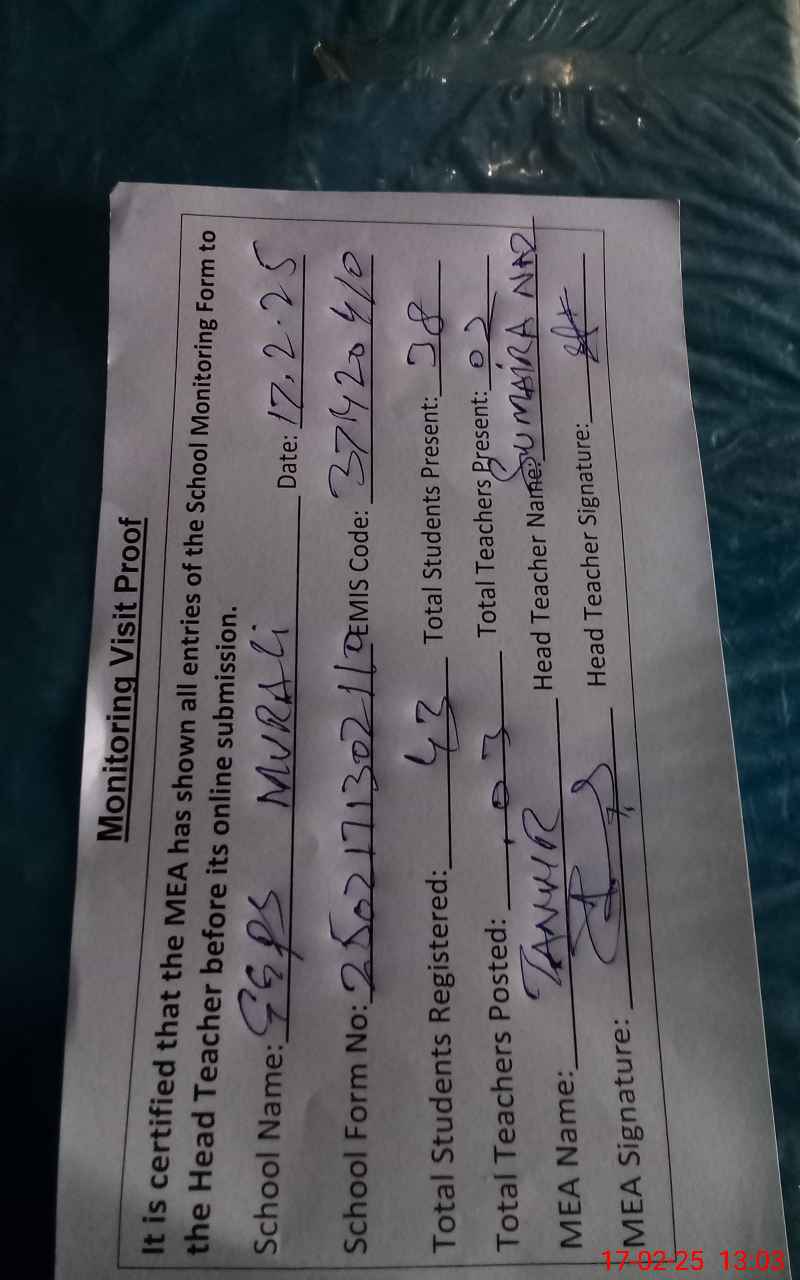 Monitoring Visit Proof
It is certified that the MEA has shown all entries of the School Monitoring Form to
the Head Teacher before its online submission.
School Name: GGPS MURALI Date: 17.2.25
School Form No: 250217130211 EMIS Code: 37142040
Total Students Registered: 43 Total Students Present: 38
Total Teachers Posted: 03 Total Teachers Present: 02
MEA Name: TANVIR Head Teacher Name: SUMAIRA NAZ
MEA Signature: Head Teacher Signature:
17-02-25 13:03